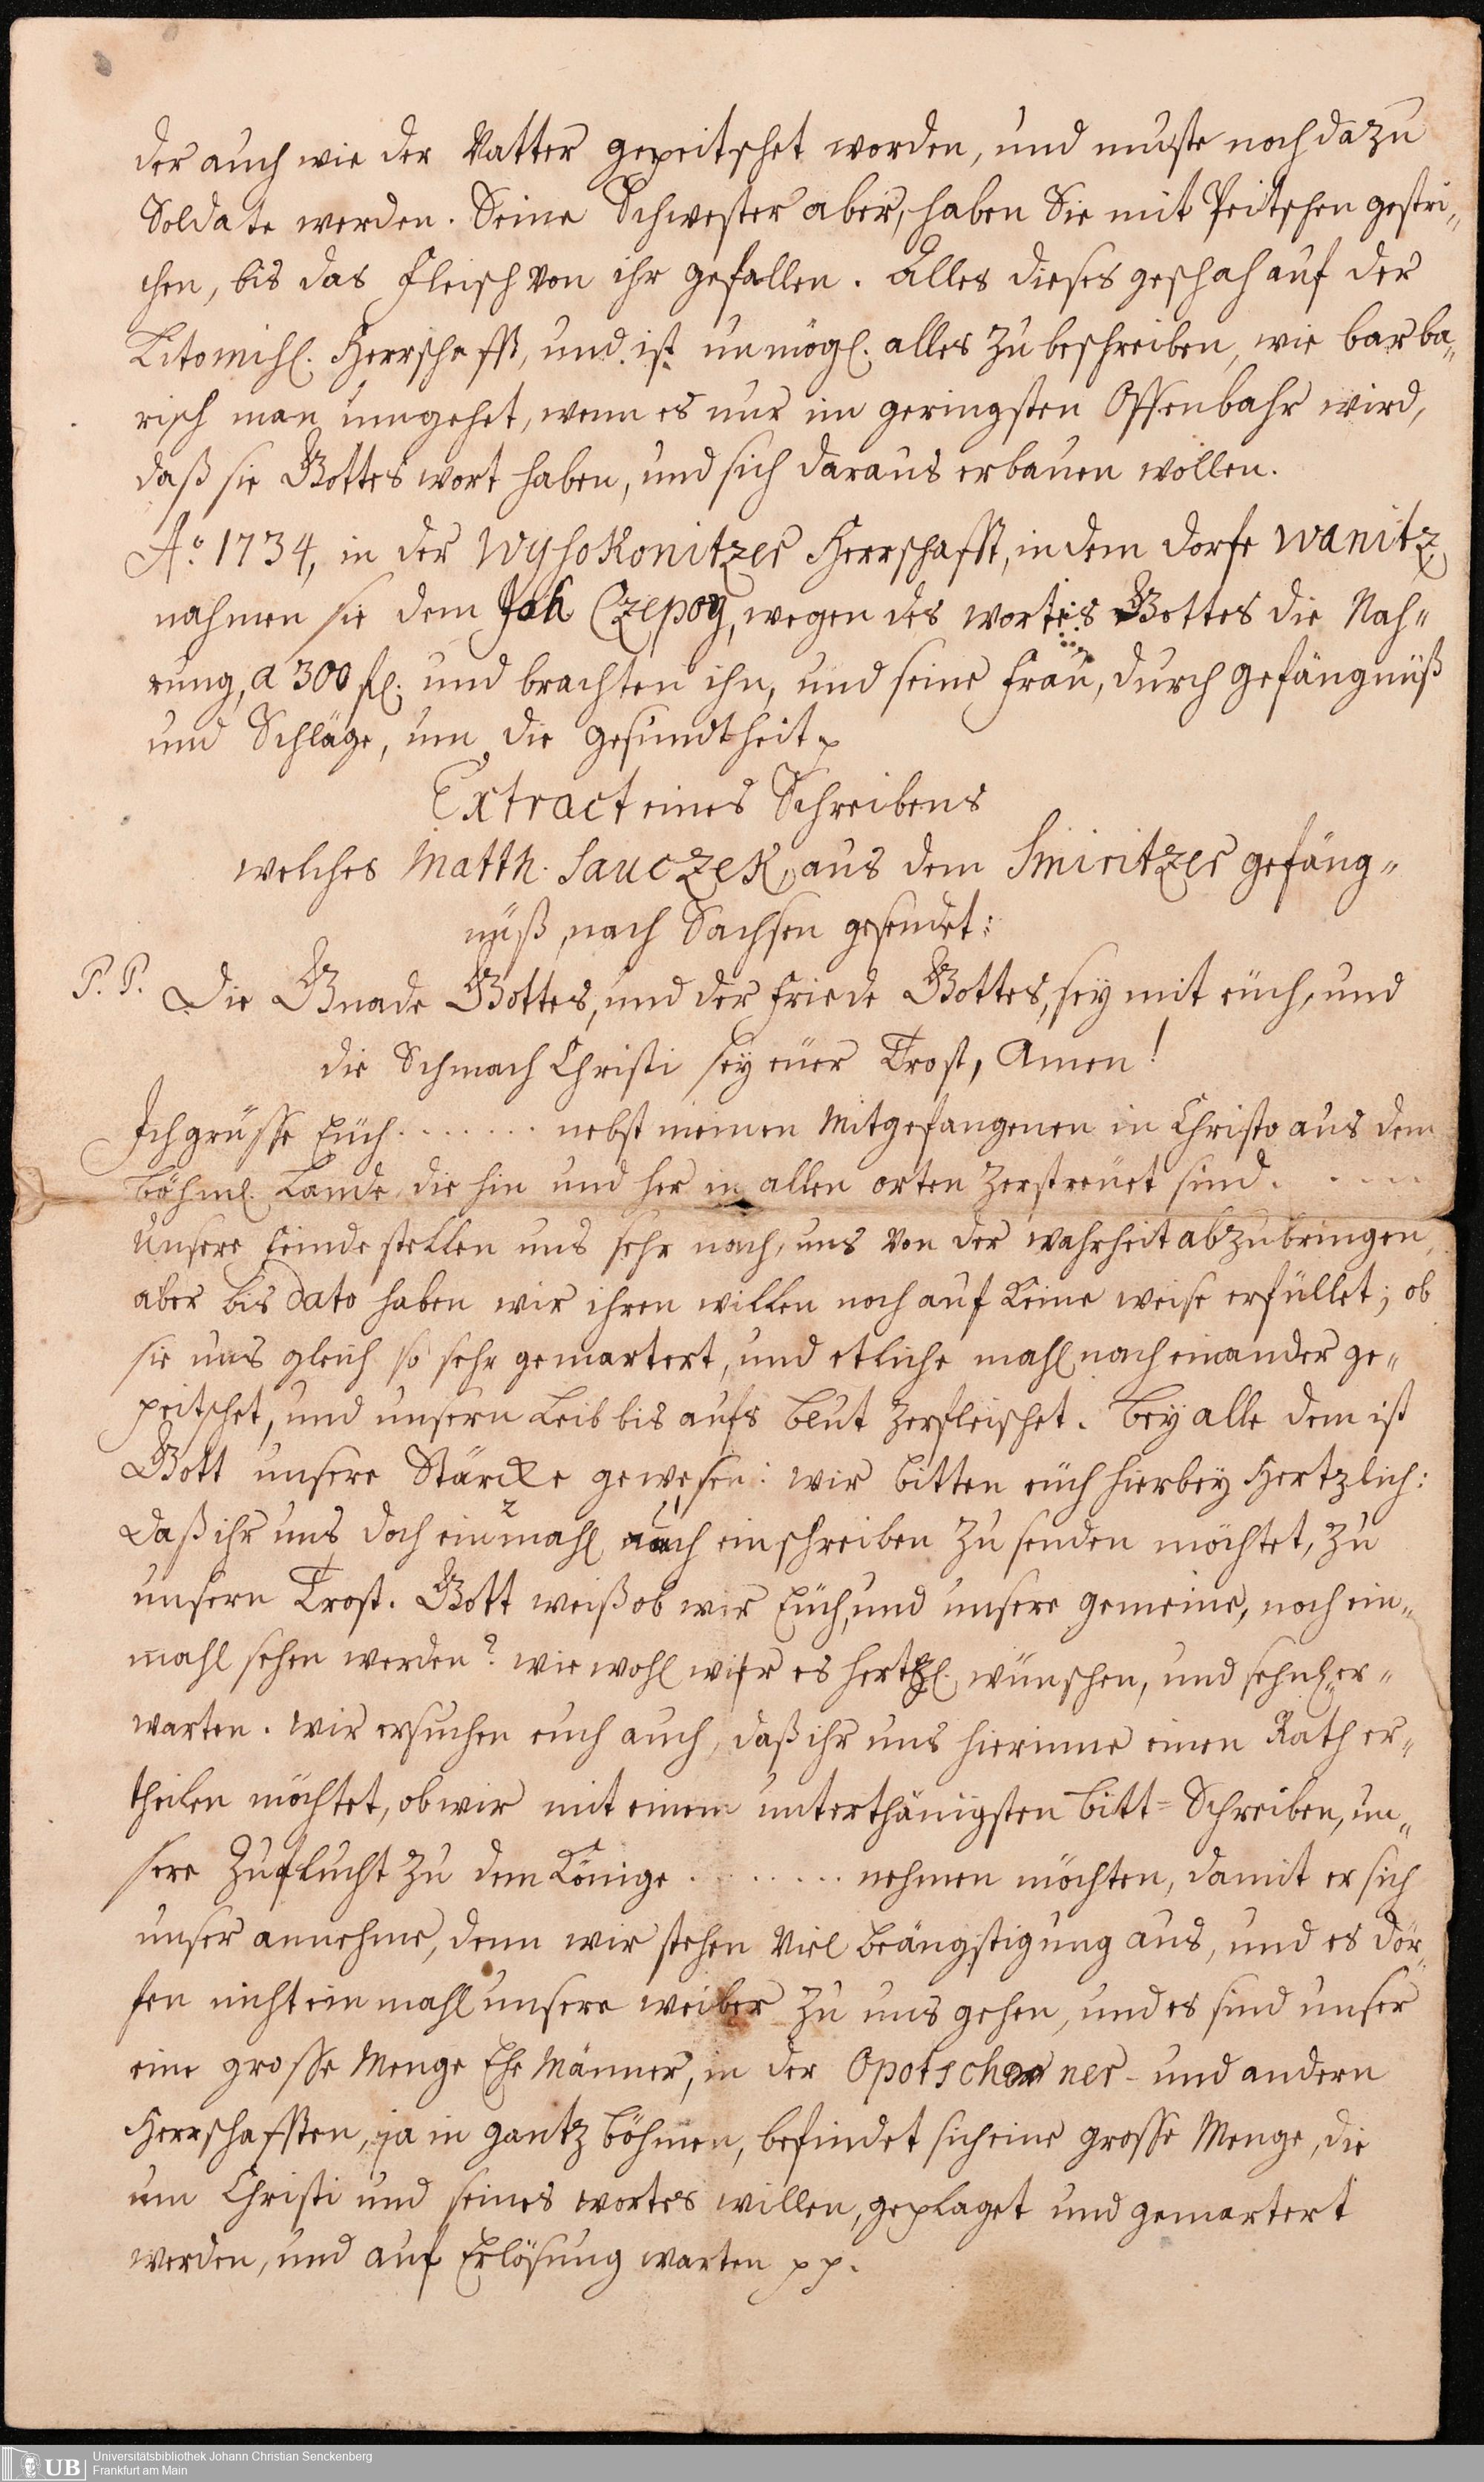 der auch wie der Vatter gepeitschet worden, und muste noch dazu
Soldate werden. Seine Schwester aber, haben Sie mit Peitschen gestri„
chen, bis das Fleisch von ihr gefallen. Alles dieses geschah auf der
Litomihl. Herrschafft, und ist unmögl. alles zu beschreiben, wie barba„
risch man umgehet, wenn es nur im geringsten Offenbahr wird,
daß sie Gottes wort haben, und sich daraus erbauen wollen.
Aō. 1734, in der Wysokonitzer Herrschafft, in dem dorfe Wanitz
nahmen sie dem Joh Czepog, wegen des wortes Gottes die Nah„
rung, a 300 fl. und brachten ihn, und seine Frau, durch gefängnüß
und Schläge, um die gesundtheit p
Extract eines Schreibens
welches Matth. Sauczek, aus dem Smiritzer gefäng„
nüß, nach Sachsen gesendet:
P. P. Die Gnade Gottes, und der Friede Gottes, sey mit euch, und
die Schmach Christi sey euer Trost, Amen!
Ich grüsse Euch . . . . . . . nebst meinen Mitgefangenen in Christo aus dem
böhml. Lande, die hin und her in allen orten zerstreuet sind. . . . .
Unsere Feinde stellen uns sehr nach, uns von der wahrheit abzubringen,
aber bis dato haben wir ihren willen noch auf keine weise erfüllet; ob
sie uns gleich so sehr gemartert, und etliche mahl nach einander ge„
peitschet, und unsern Leib bis aufs blut zerfleischet. Bey alle dem ist
Gott unsere Stärcke gewesen: wir bitten euch hierbey Hertzlich:
daß ihr uns doch einmahl auch ein schreiben zu senden möchtet, zu
unsern Trost. Gott weiß ob wir Euch, und unsere gemeine, noch ein„
mahl sehen werden? wie wohl wir es hertzl. wünschen, und sehnl. er„
warten. Wir ersuchen euch auch, daß ihr uns hierinne einen Rath er„
theilen möchtet, ob wir mit einem unterthänigsten bitt=Schreiben, un„
sere Zuflucht zu dem Könige . . . . . . . nehmen möchten, damit er sich
unser annehme, denn wir stehen viel beängstigung aus, und es dör„
fen nicht einmahl unsere weiber zu uns gehen, und es sind unser
eine grosse Menge Ehe Männer, in der Opotschner- und andern
Herrschafften, ja in gantz böhmen, befindet sich eine grosse Menge, die
um Christi und seines wortes willen, geplaget und gemartert
werden, und auf Erlösung warten pp.
Universitätsbibliothek Johann Christian Senckenberg
Frankfurt am Main
UB